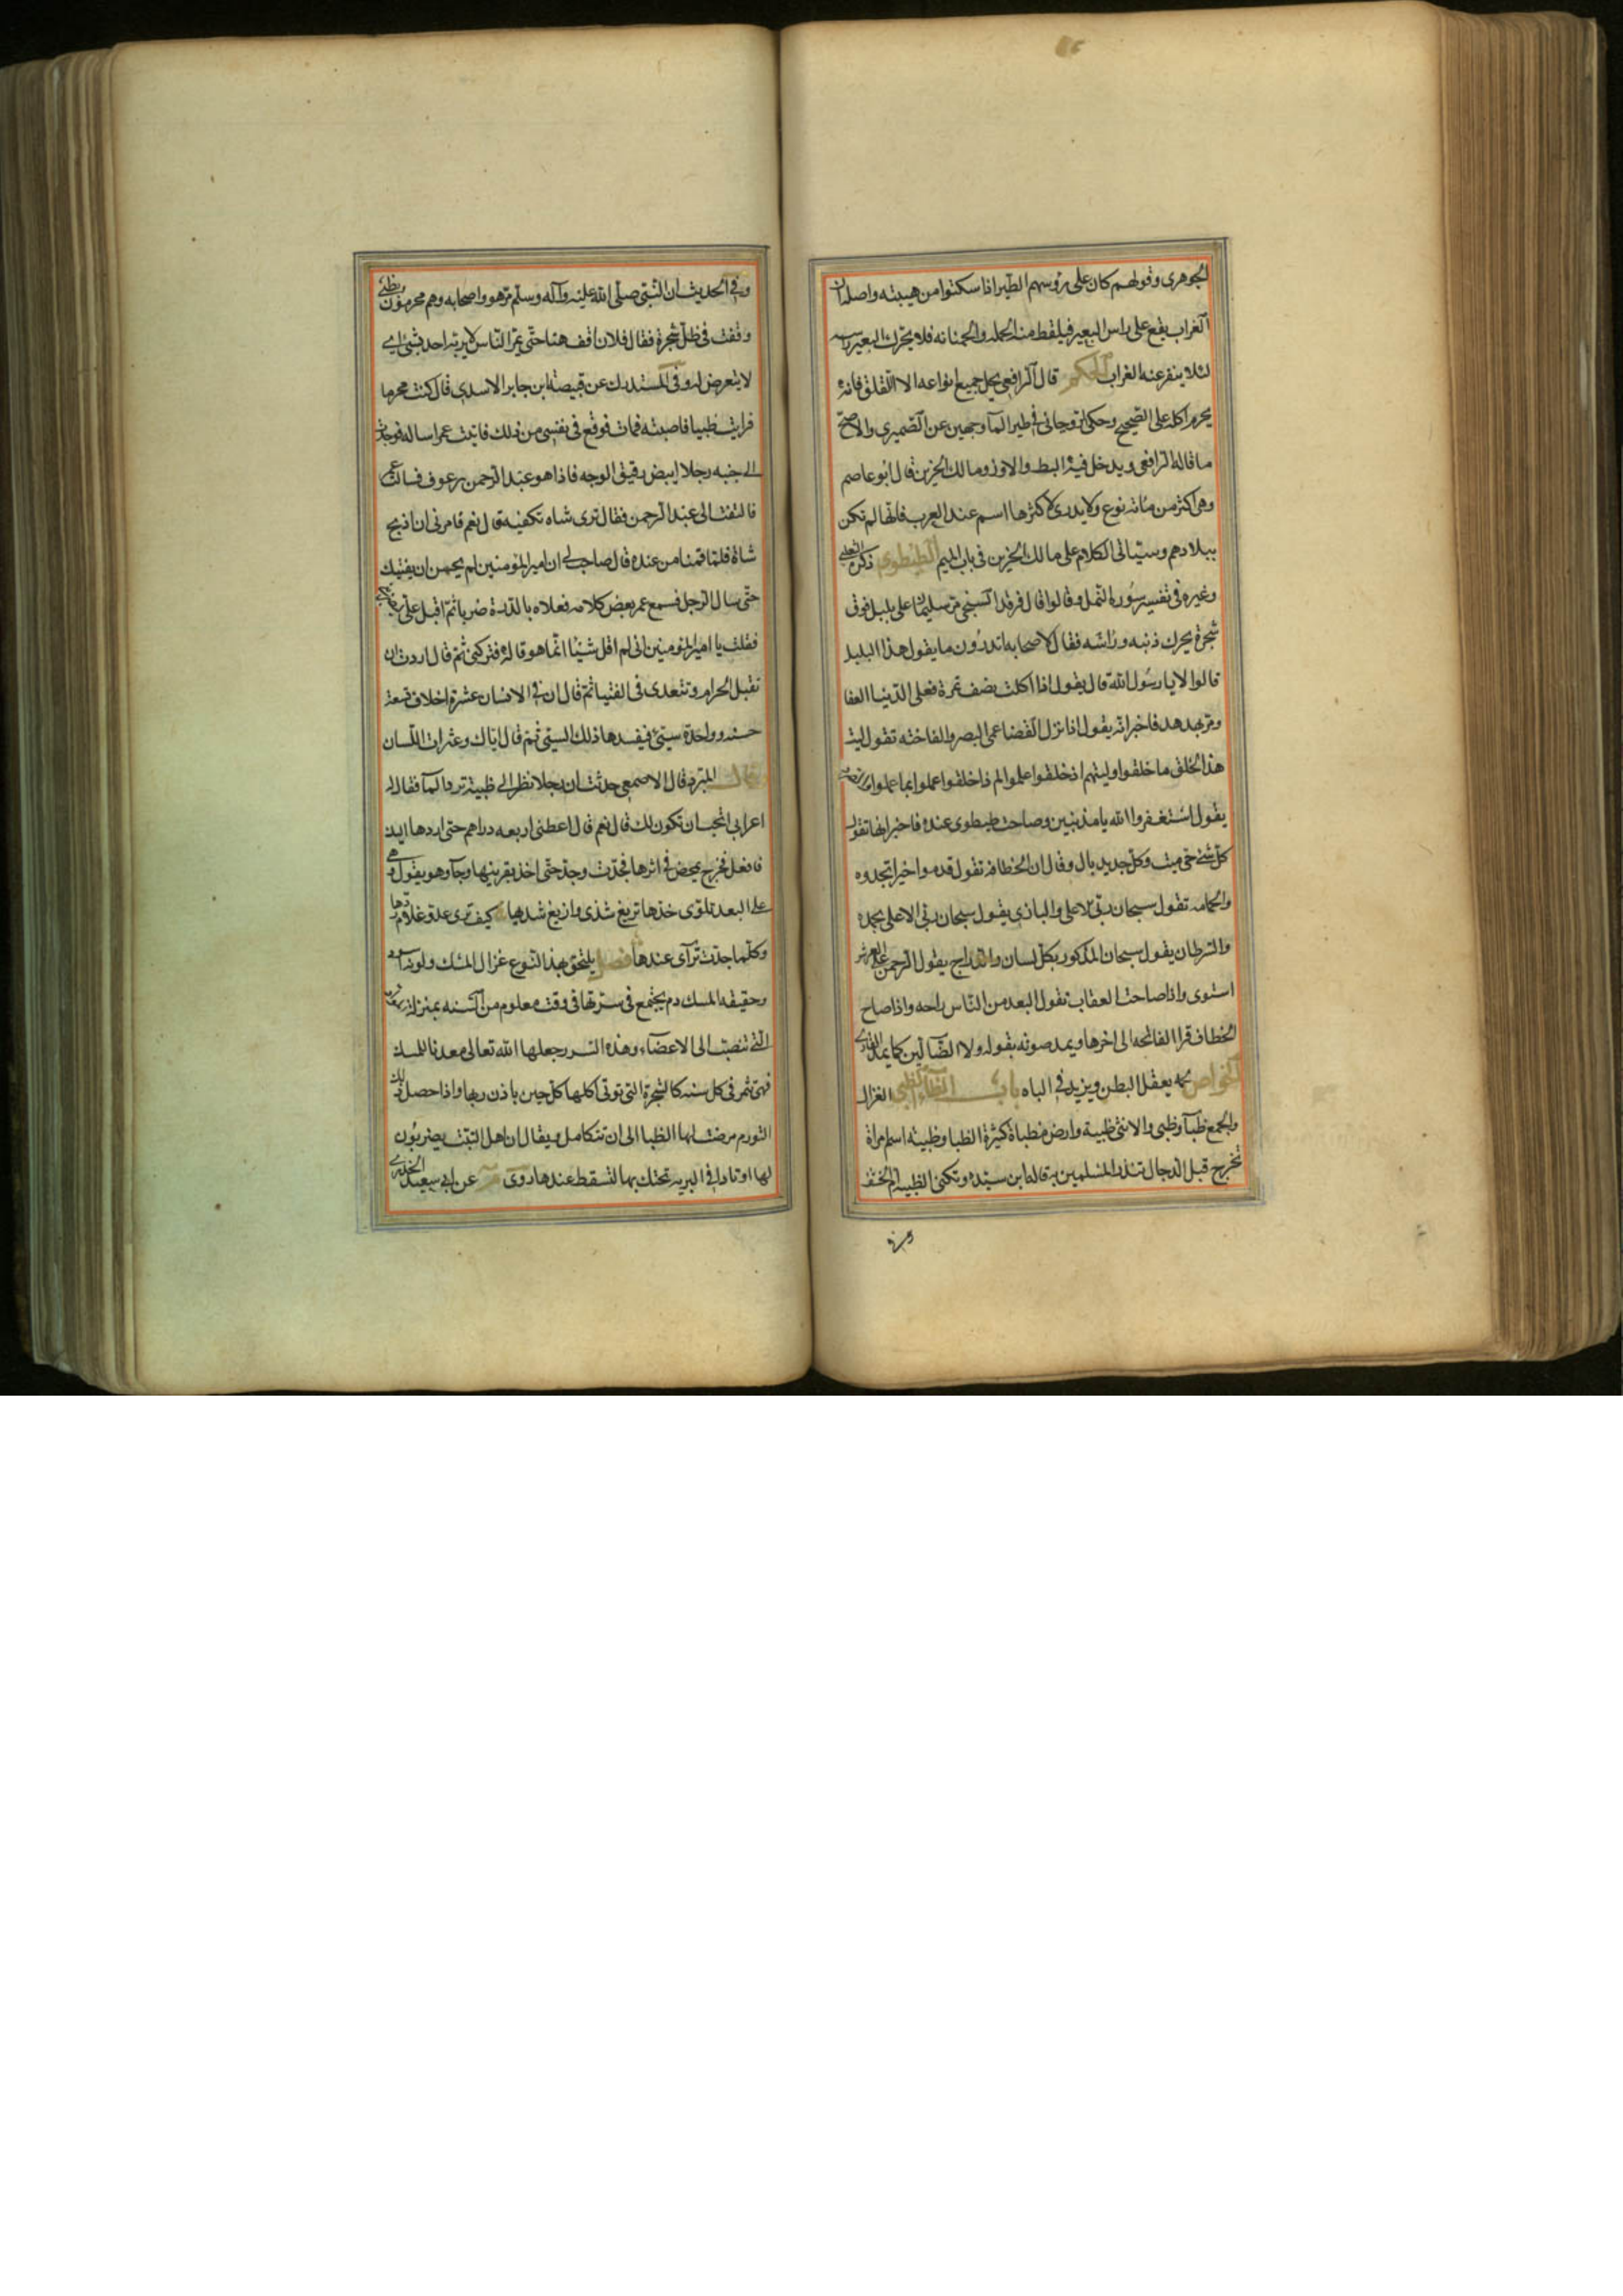 الجوهرى وقولهم كان على رؤسهم الطير اذا سكنوا من هيبته واصله ان
الغراب يقع على راس البعير فيلقط منه الحلمه والحمنانه فلا يحرك البعير راسه
لئلا ينفر عنه الغراب الحكم قال الرافعى يحل جميع انواعه الا اللقلق فانه
يحرم اكله على الصحيح وحكى الروحانى فى طير المآ وجهين عن الصميرى والاصح
ما قاله الرافعى ويدخل فيه البط والاوز ومالك الحزين قال ابو عاصم
وهى اكثر من مأته نوع ولا يدرى لاكثرها اسم عند العرب فانها لم تكن
ببلادهم وسياتى الكلام على مالك الحزين فى باب الميم الطيطوى ذكره الثعلبى
وغيره فى تفسير سورة النمل وقالوا قال فرقد السبخى مر سليمان على بلبل فوق
شجرة يحرك ذنبه وراسه فقال لاصحابه اتدرون ما يقول هذا البلبل
قالوا لا يا رسول الله قال يقول اذا اكلت نصف تمرة فعلى الدنيا العفا
ومر بهدهد فاخبر انه يقول اذا نزل القضا عمى البصر والفاخته تقول ليت
هذا الخلق ما خلقوا وليتهم اذ خلقوا علموا لم ذا خلقوا عملوا بما علموا
يقول استغفروا الله يا مذنبين وصاحت طيطوى عنده فاخبر انها تقول
كل شئ حى ميت وكل جديد بال وقال ان الخطافه تقول قدموا خيرا تجدوه
والحمامه تقول سبحان ربى الاعلى والبازى يقول سبحان ربى الاعلى بحمده
والسرطان يقول سبحان المذكور بكل لسان والدراج يقول الرحمن على العرش
استوى واذا صاحت العقاب تقول البعد من الناس راحه واذا صاح
الخطاف قرا الفاتحه الى اخرها ويمد صوته بقوله ولا الضالين كما يمد القارى
الخواص لحمه يعقل البطن ويزيد فى الباه باب الظاء الظبى الغزال
والجمع ظبآ وظبى والانثى ظبية وارض مظباة كثيرة الظبا وظبية اسم امراة
تخرج قبل الدجال تنذر المسلمين به قاله ابن سيده وتكنى الظبية ام الخشف
وفى الحديث ان النبى صلى الله عليه وآله وسلم مر هو واصحابه وهم محرمون بظبى
واقف فى ظل شجرة فقال فلان اقف هنا حتى يمر الناس لا يريبه احد بشئ اى
لا يتعرض له وفى المستدرك عن قبيصه ابن جابر الاسدى قال كنت محرما
فرايت ظبيا فاصبته فمات فوقع فى نفسى من ذلك فاتيت عمر اساله فوجدت
الى جنبه رجلا ابيض رقيق الوجه فاذا هو عبد الرحمن بن عوف فسالت عمر
فالتفت الى عبد الرحمن فقال ترى شاه تكفيه قال نعم فامرنى ان اذبح
شاة فلما قمنا من عنده قال صاحب لى ان امير المؤمنين لم يحسن ان يفتيك
حتى سال الرجل فسمع عمر بعض كلامه فعلاه بالدرة ضربا ثم اقبل على
فقلت يا امير المؤمنين انى لم اقل شيئا انما هو قاله فتركنى ثم قال اردت ان
تقبل الحرام وتتعدى فى الفتيا ثم قال ان فى الانسان عشرة اخلاق تسعة
حسنه وواحدة سيئ فيفسدها ذلك السيئ ثم قال اياك وعثرات اللسان
قال المبرد قال الاصمعى حدثت ان رجلا نظر الى ظبية ترد المآ فقال له
اعرابى اتحب ان تكون لك قال نعم قال اعطنى اربعه دراهم حتى اردها اليك
فافعل فخرج يمحض فى اثرها فجدت وجد حتى اخذ بقرنيها وجآ وهو يقول وهى
على البعد تلوى خدها تريغ شدى وازيغ شدها كيف ترى عدو غلام ردها
وكلما جدت ترآى عندها فصل يلتحق بهذا النوع غزال المسك ولونه اسود
وحقيقه المسك دم يجتمع فى سرتها فى وقت معلوم من السنه بمنزلة
التى تنصب الى الاعضآء وهذه السرر جعلها الله تعالى معدنا للمسك
فهى تثمر فى كل سنه كالشجرة التى توتى اكلها كل حين باذن ربها واذا حصل ذلك
التورم مرضت لها الظبا الى ان تتكامل ويقال ان اهل التبت يضربون
لها اوتادا فى البرية تحتك بها لتسقط عندها روى عن ابى سعيد الخدرى